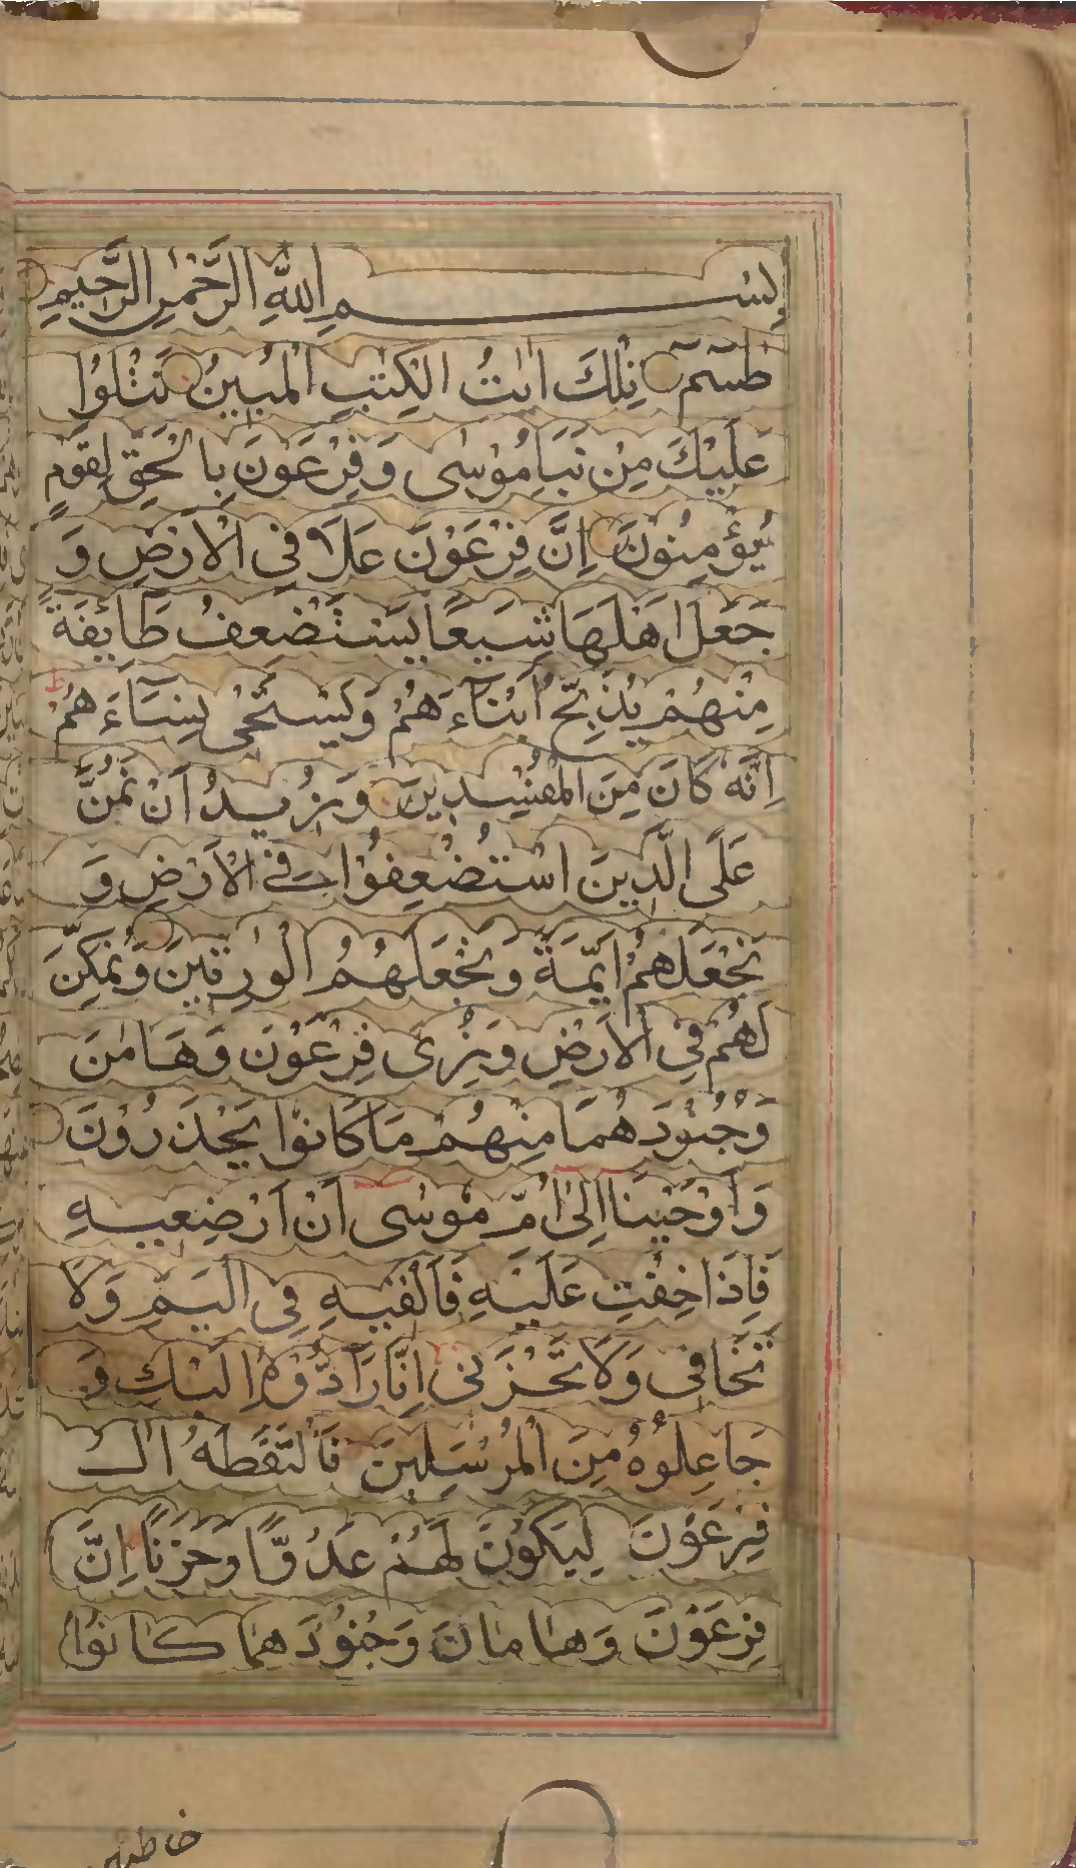 بِسْمِ اللّٰهِ الرَّحْمٰنِ الرَّحِيْمِ
طٰسٓمٓ تِلْكَ اٰيٰتُ الْكِتٰبِ الْمُبِيْنِ نَتْلُوْا
عَلَيْكَ مِنْ نَبَاِ مُوْسٰى وَفِرْعَوْنَ بِالْحَقِّ لِقَوْمٍ
يُّؤْمِنُوْنَ اِنَّ فِرْعَوْنَ عَلَا فِى الْاَرْضِ وَ
جَعَلَ اَهْلَهَا شِيَعًا يَسْتَضْعِفُ طَآئِفَةً
مِنْهُمْ يُذَبِّحُ اَبْنَآءَهُمْ وَيَسْتَحْىٖ نِسَآءَهُمْ
اِنَّهٗ كَانَ مِنَ الْمُفْسِدِيْنَ وَنُرِيْدُ اَنْ نَّمُنَّ
عَلَى الَّذِيْنَ اسْتُضْعِفُوْا فِى الْاَرْضِ وَ
نَجْعَلَهُمْ اَئِمَّةً وَّنَجْعَلَهُمُ الْوٰرِثِيْنَ وَنُمَكِّنَ
لَهُمْ فِى الْاَرْضِ وَنُرِىَ فِرْعَوْنَ وَهَامٰنَ
وَجُنُوْدَهُمَا مِنْهُمْ مَا كَانُوْا يَحْذَرُوْنَ
وَاَوْحَيْنَا اِلٰى اُمِّ مُوْسٰى اَنْ اَرْضِعِيْهِ
فَاِذَا خِفْتِ عَلَيْهِ فَاَلْقِيْهِ فِى الْيَمِّ وَلَا
تَخَافِى وَلَا تَحْزَنِى اِنَّا رَآدُّوْهُ اِلَيْكِ وَ
جَاعِلُوْهُ مِنَ الْمُرْسَلِيْنَ فَالْتَقَطَهٗ اٰلُ
فِرْعَوْنَ لِيَكُوْنَ لَهُمْ عَدُوًّا وَّحَزَنًا اِنَّ
فِرْعَوْنَ وَهَامَانَ وَجُنُوْدَهُمَا كَانُوْا
خاطـٔـين